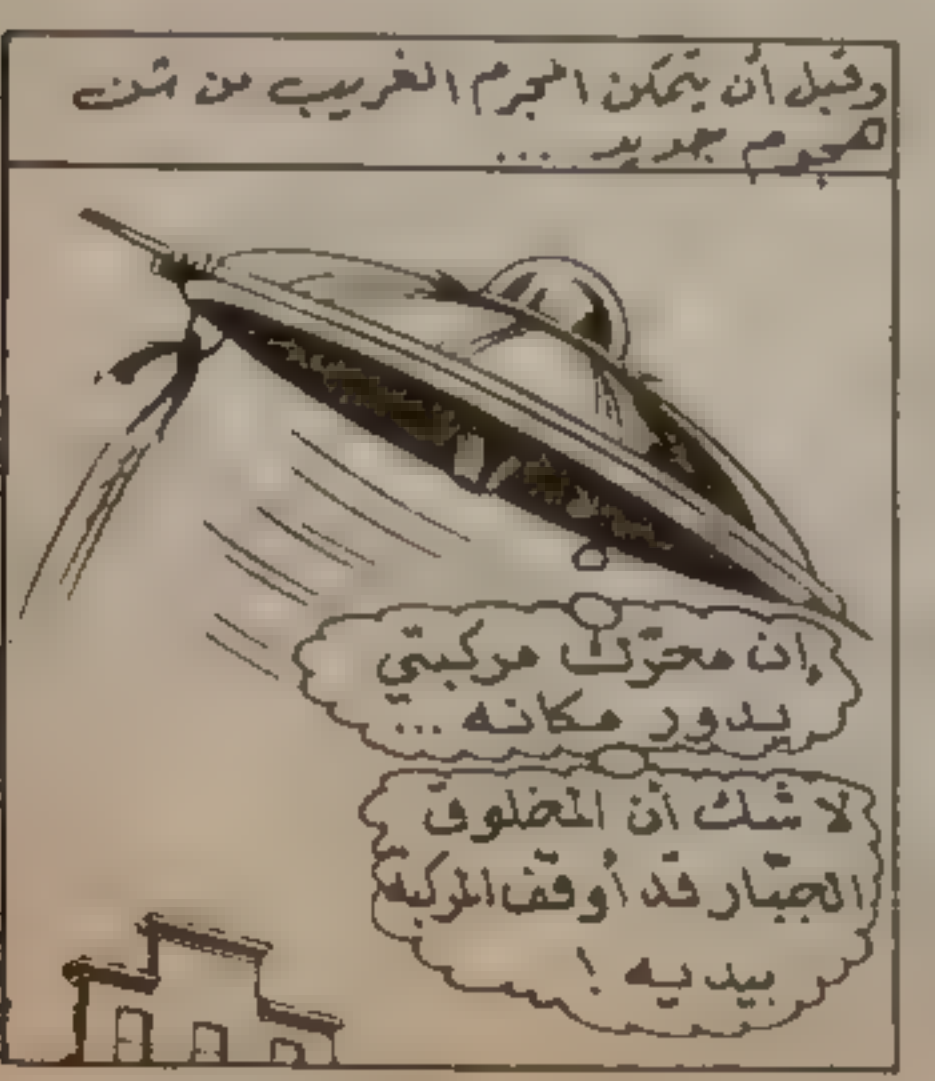 وقبل أن يتمكن المجرم الغريب من شن
هجوم جديد ...
إن محرّك مركبتي
يدور مكانه ...
لا شك أن المخلوق
الجبّار قد أوقف المركبة
بيديه !